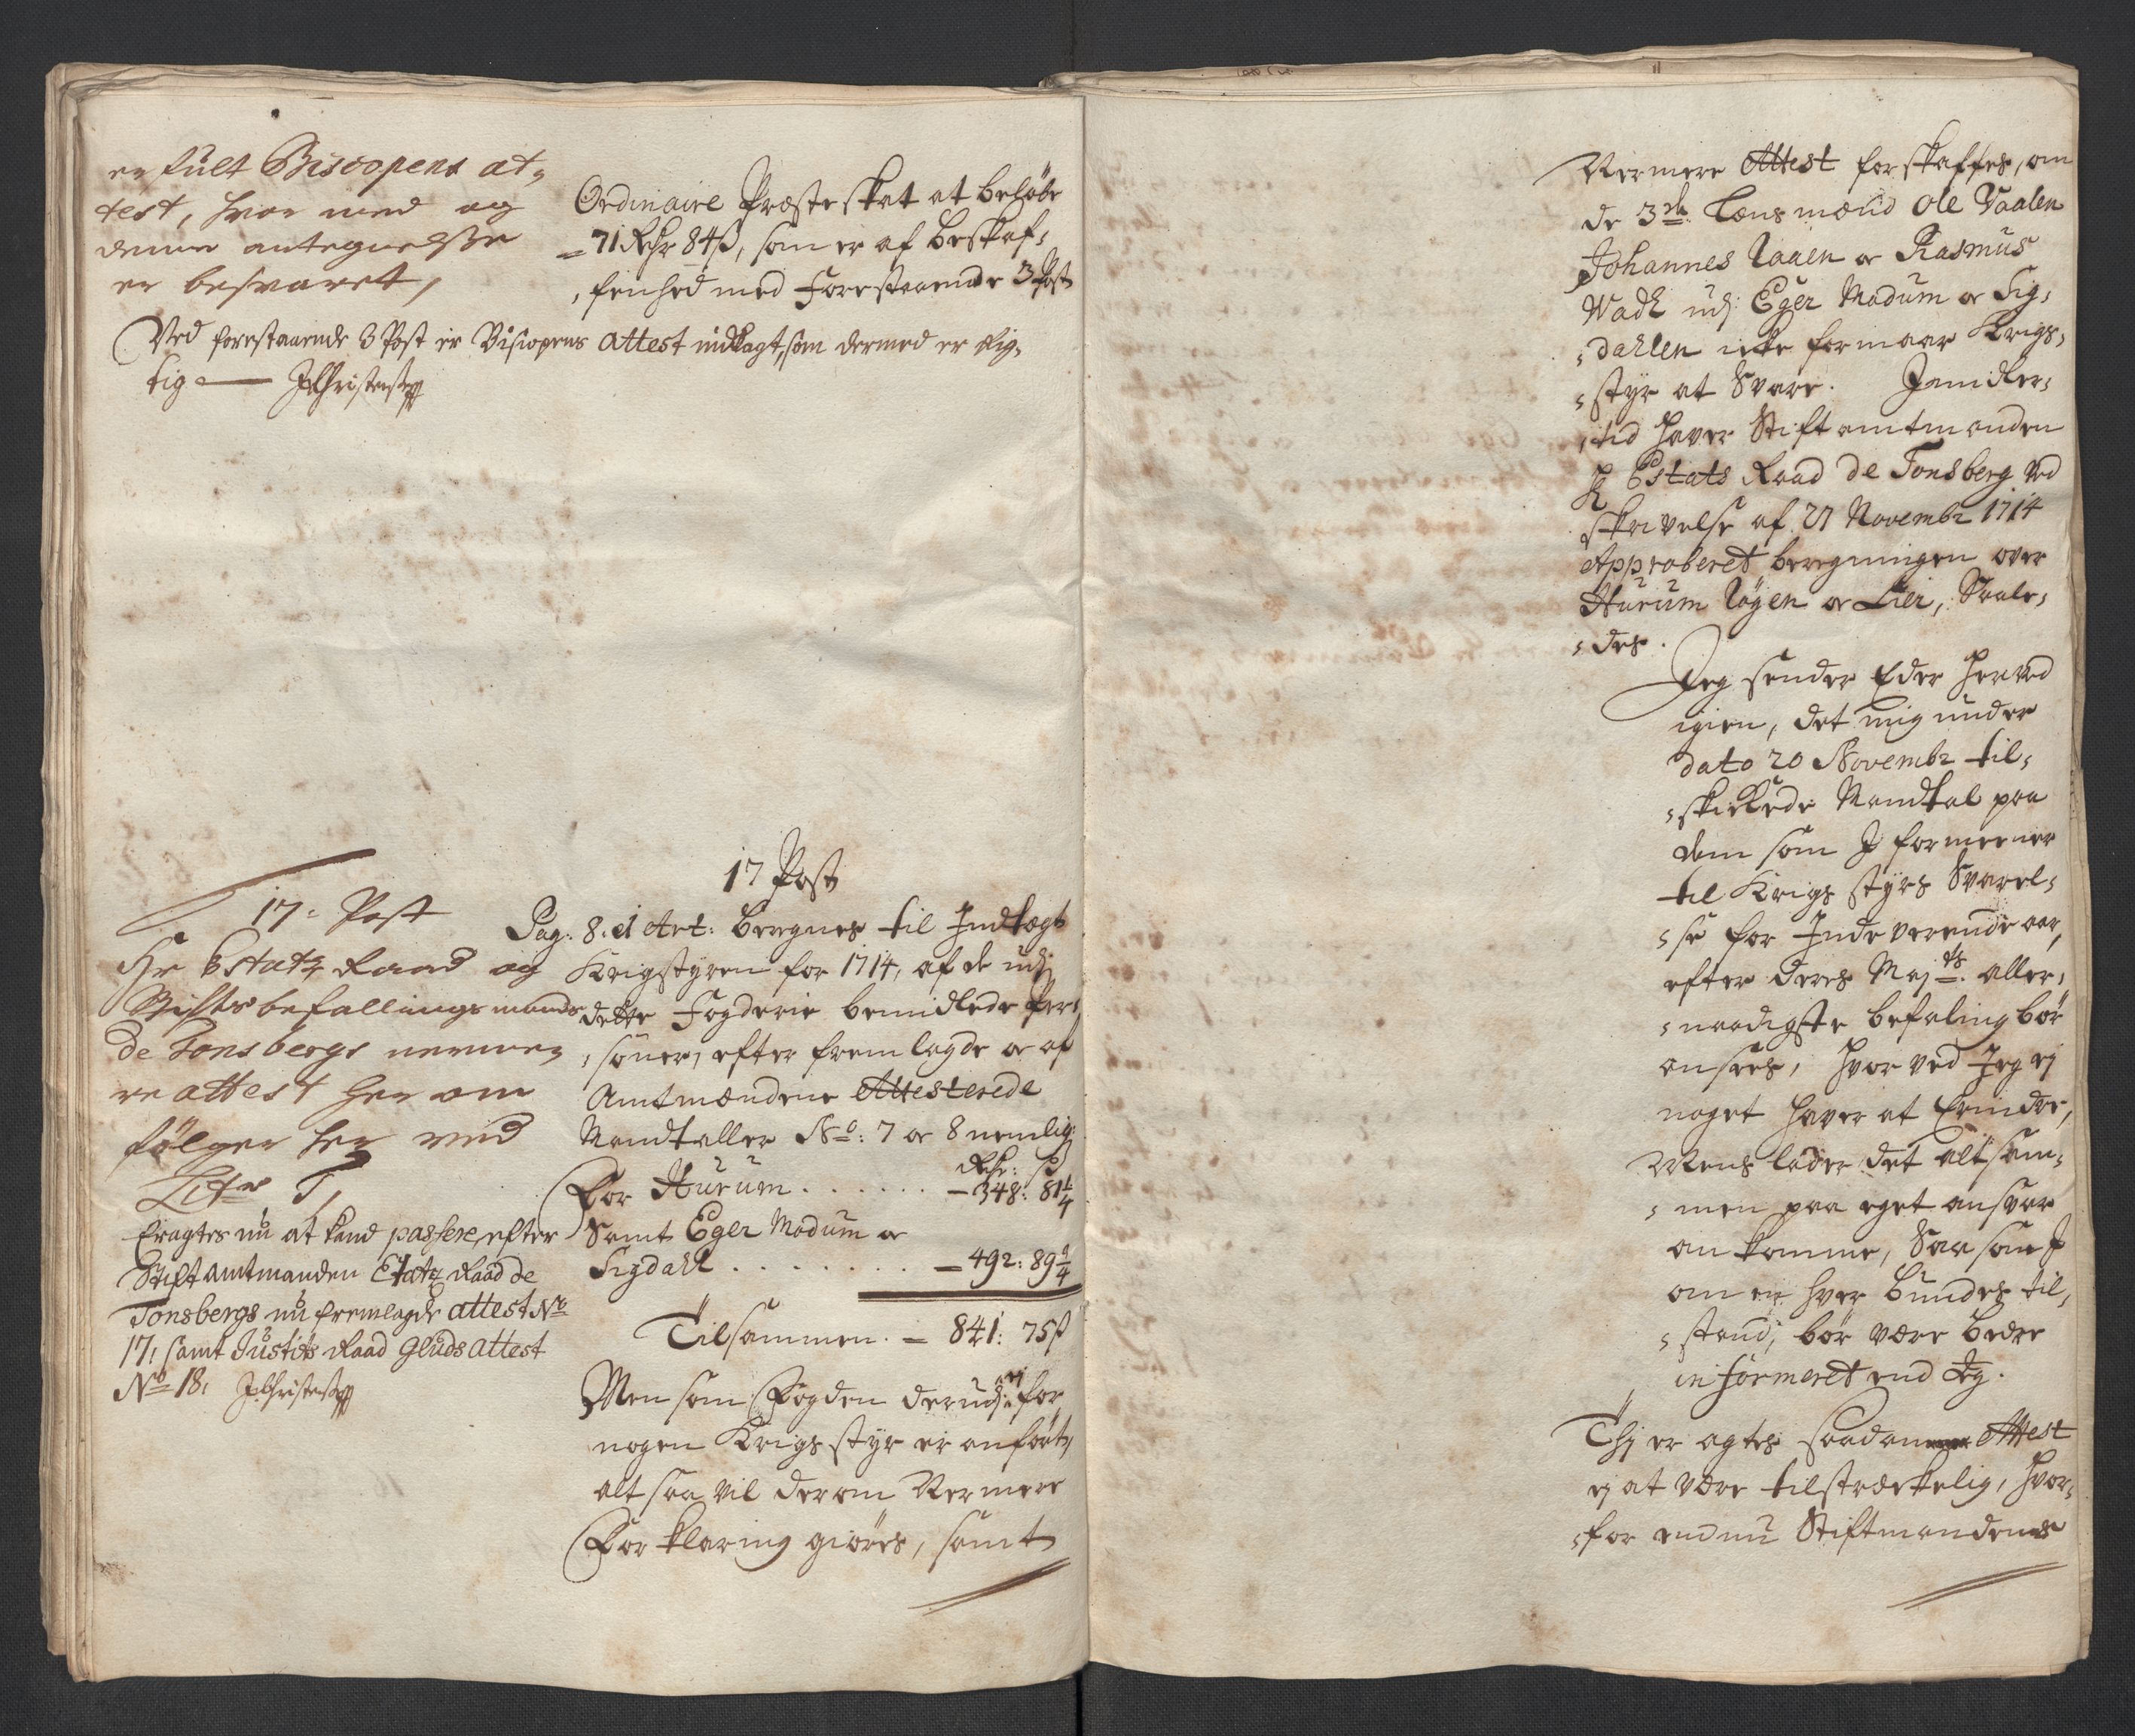 er fült Biscopens at-
test, hvor med og
denne antegnelsse
er besvaret,
Ordinaire Præsteskat at beløbe
71 Rdr 84ß, som er af beskaf-
fenhed med Forestaaende 3 Post
Ved forestaaende 3 Post er Biscopens attest indlagt, som dermed er Rig-
tig
17: Post
Hr Estatz Raad og
Stifts befallings mands
de Tonsbergs nermer
re attest her om
følger her ved
Litr T,
Eragtes nu at kand passere, efter
Stiftamtmanden Etatz Raad de
Tonsbergs nu fremlagde attest No
17, samt Justits Raad Gluds attest
No 18,
17 Post
Pag: 8. Art: beregnes til Indtægt
Krigstyren for 1714, af de udj
dette Fogderie bemidlede Per-
soner, efter fremlagde or af
Amtmændene Attesterede
Mandtaller No: 7 or 8 nemlig:
Rdr: ß
For Hurum . . . . . . – 348: 81 1/4
Samt Eger Modum or
Sigdahl . . . . . . . – 492: 89 3/4
Tilsammen. – 841: 75ß
Men som Fogden derudj ej for
nogen Krigs styr er anført,
alt saa vil derom Nermere
Forklaring giøres, samt
Nermere Attest forskaffes, om
de 3de Lens mænd Ole Vaalen
Johannes Raaen or Rasmus
Wadl udj Eger Modum or Sig-
dahlen icke formaar Krigs-
styr at Svare. Jmidler-
tid haver Stiftamtmanden
H Estats Raad de Tonsberg ved
skrivelse af 27 Novembr 1714
Approberet beregningen over
Hurum Røgen or Lier, Saale-
des.
Jeg sender Eder herved
igien, det mig under
dato 20 Novembr til-
skickede Mandtal paa
dem som J formeener
til Krigs styrs Svarel-
se for Inde verende aar,
efter deres Majts aller-
naadigste befaling bør
ansees, hvor ved Jeg ej
noget haver at Erindre,
Mens lader det altsam-
men paa eget ansvar
ankomme, Saa som J
om en hver bundes til-
stand, bør være bedre
informeret end Jeg.
Thj er agtes saadan Attest
ej at være tilstreckelig, hvor-
for endnu Stiftmandens